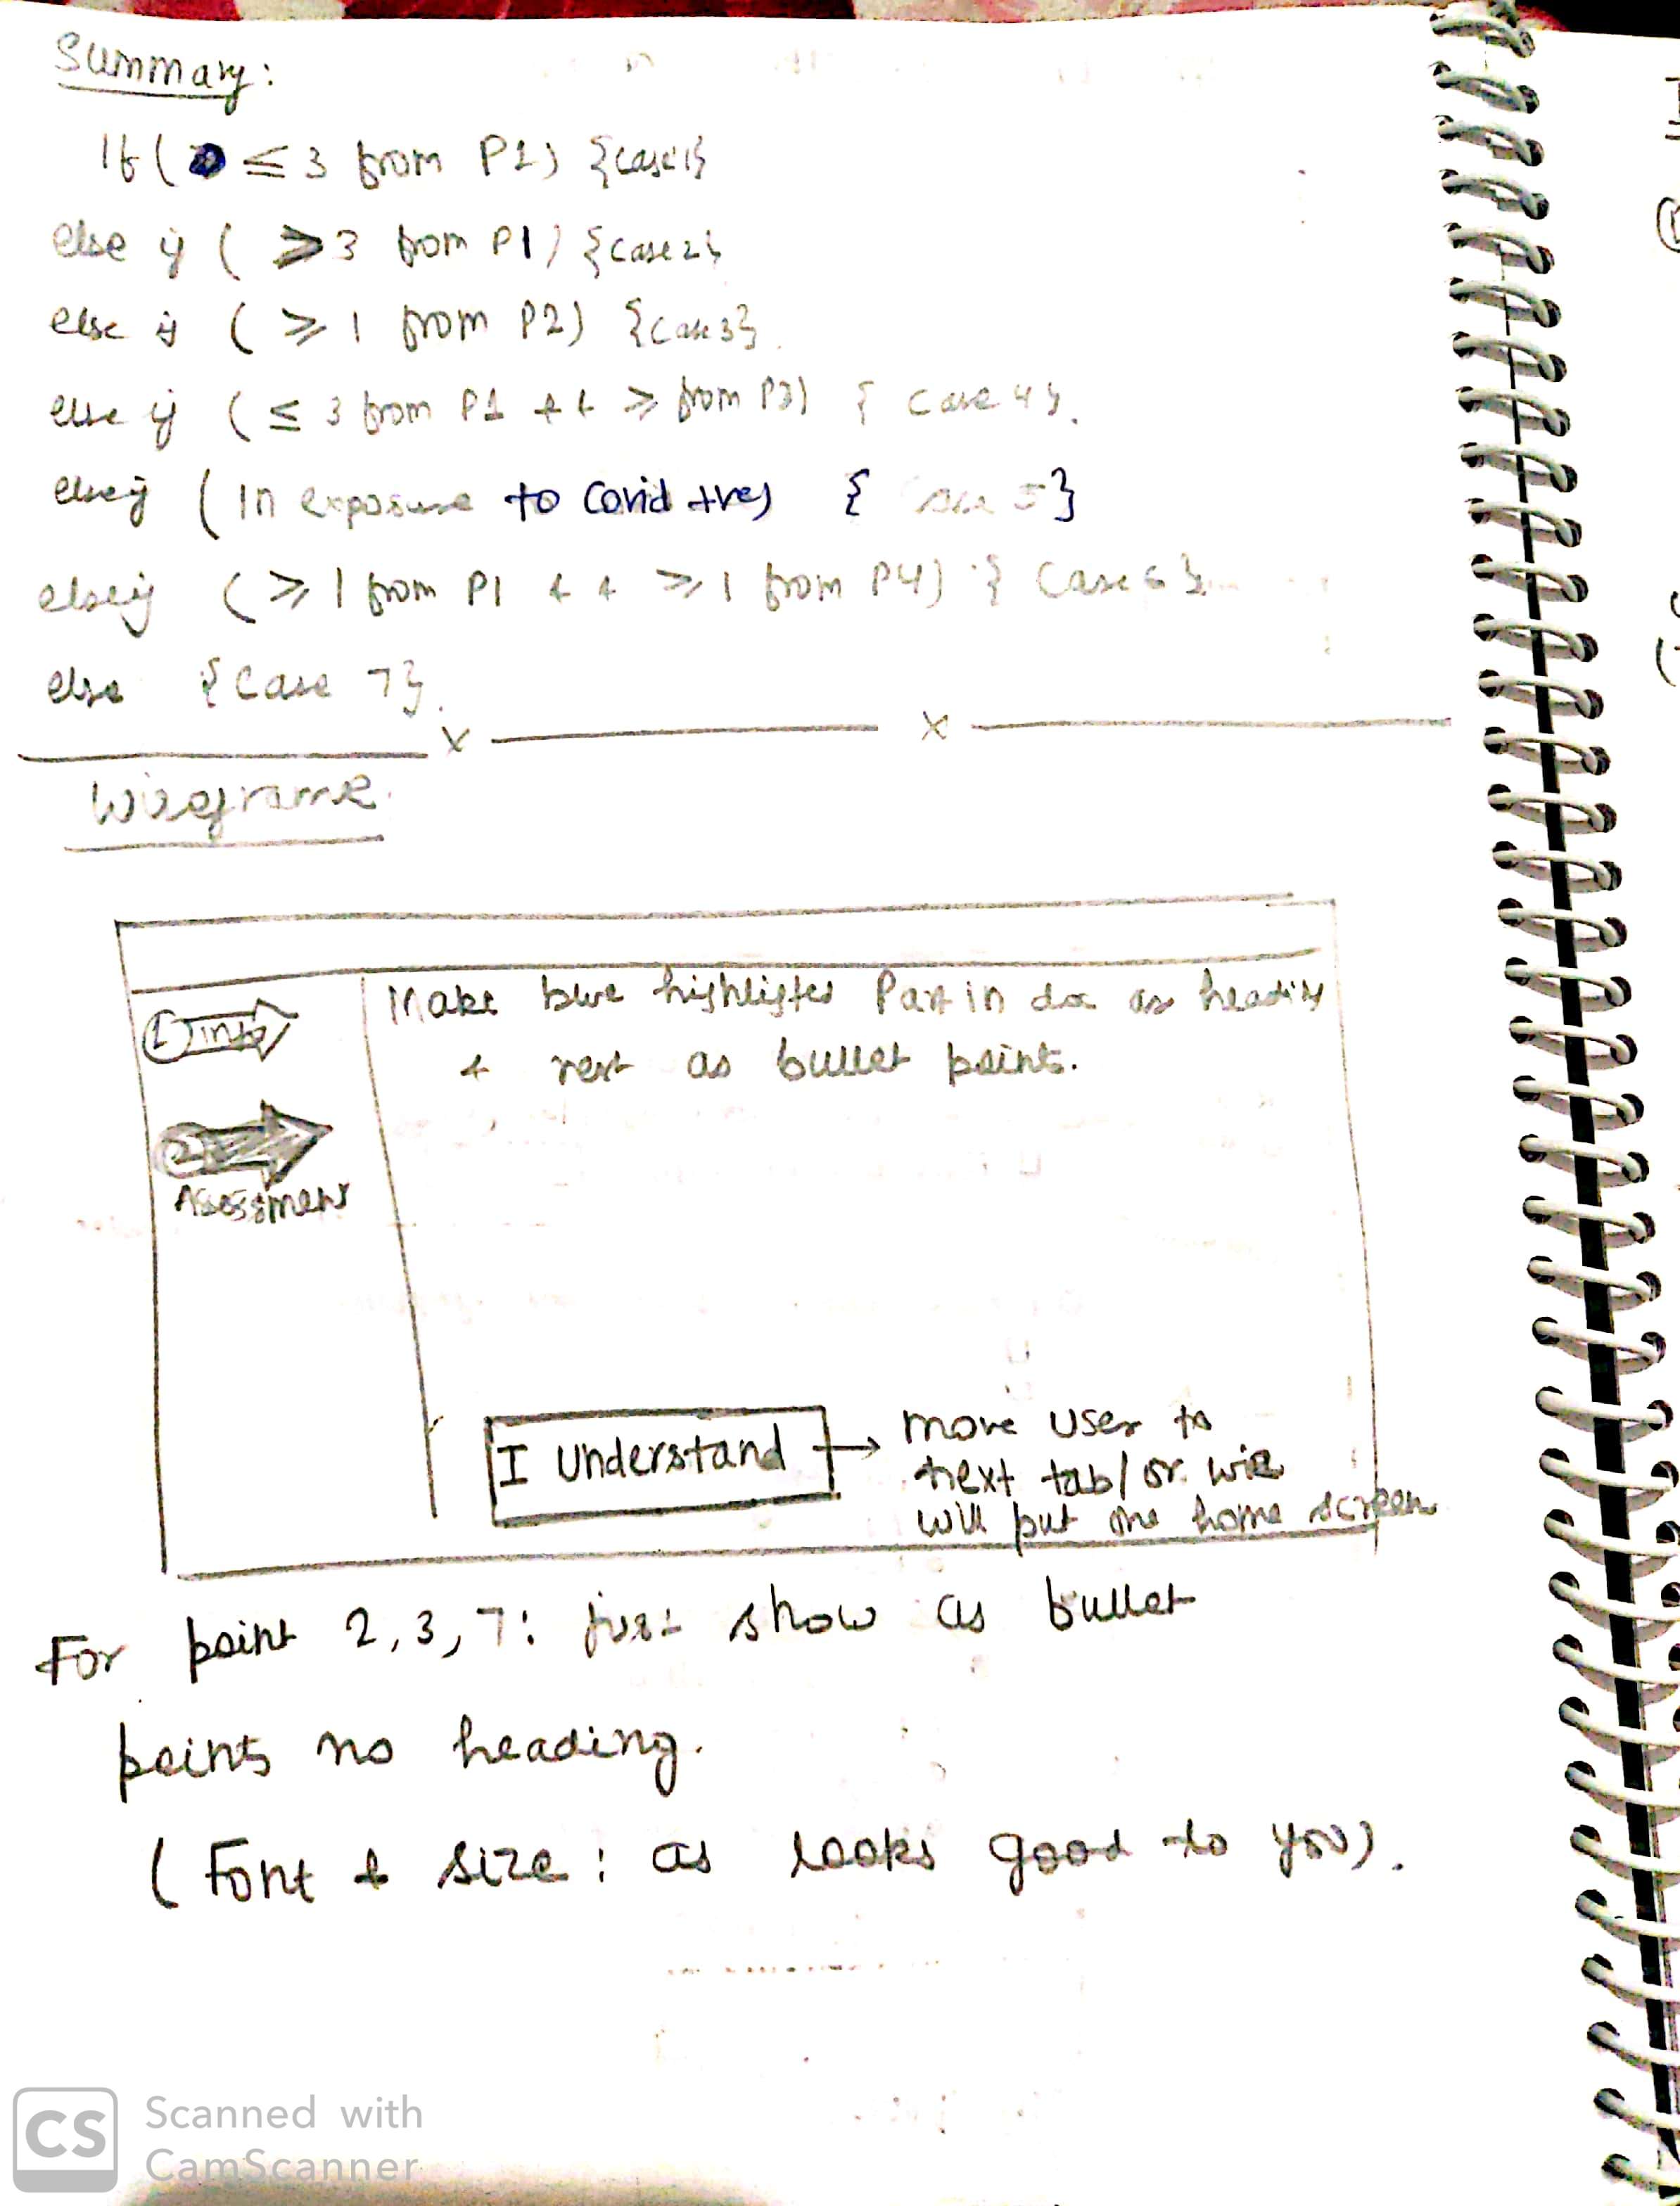 Summary:
If ( ≤ 3 from P1) {case1}
else if ( ≥3 from P1) {case2}
else if ( ≥ 1 from P2) {case3}
else if ( ≤ 3 from P1 && ≥ from P3) { case 4}.
elseif ( In exposure to Covid +ves { case 5}
elseif ( ≥ 1 from P1 && ≥ 1 from P4) { case 6 }
else { Case 7}.
x x
Wireframe
Make blue highlighted Part in doc as heading
& rest as bullet points.
1 info
2
Assessment
I Understand → move user to
next tab / or
will put one home screen
For point 2, 3, 7: just show as bullet
points no heading.
( Font & size : as looks good to you).
CS Scanned with
CamScanner